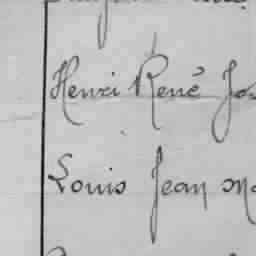 Henri René Jos
Louis Jean Ma